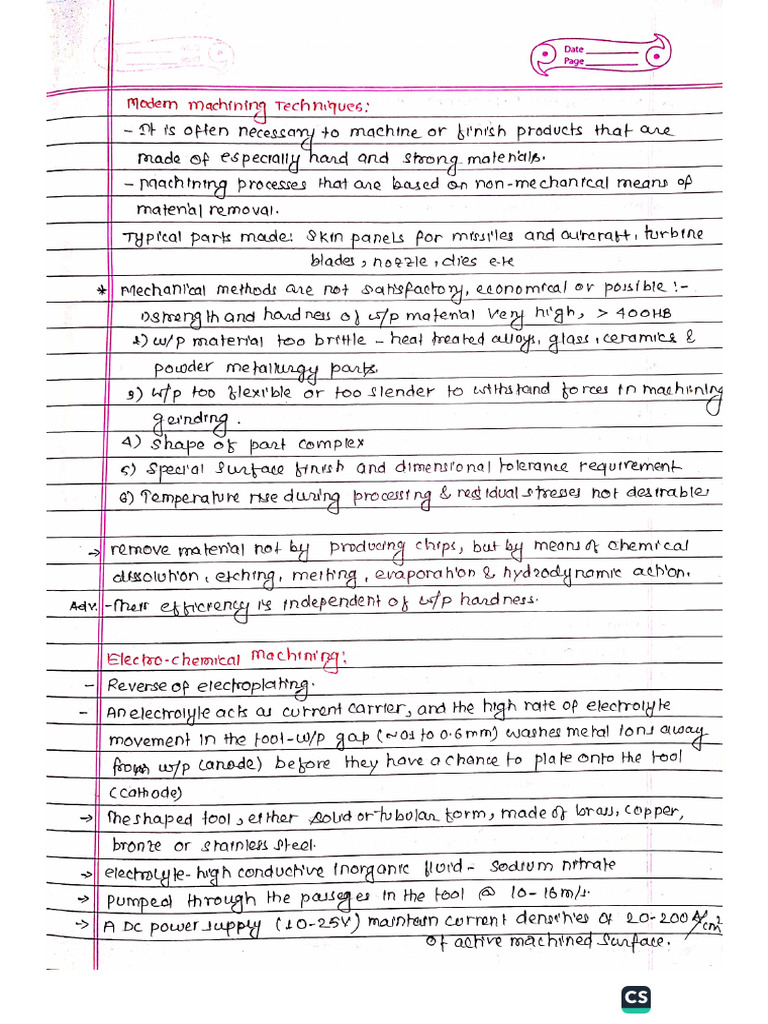 Date
Page
Modern Machining Techniques:
- It is often necessary to machine or finish products that are
made of especially hard and strong materials.
- Machining processes that are based on non-mechanical means of
material removal.
Typical parts made: Skin panels for missiles and aircraft, turbine
blades, nozzle, dies etc
* Mechanical methods are not satisfactory, economical or possible :-
1) strength and hardness of w/p material very high, > 400HB
2) w/p material too brittle - heat treated alloys, glass, ceramics &
powder metallurgy parts.
3) w/p too flexible or too slender to withstand forces in machining
geinding.
4) Shape of part complex
5) Special surface finish and dimensional tolerance requirement
6) Temperature rise during processing & residual stresses not desirable
→ remove material not by producing chips, but by means of chemical
dissolution, etching, melting, evaporation & hydrodynamic action.
Adv. - Their efficiency is independent of w/p hardness.
Electro-chemical Machining:
- Reverse of electroplating.
- An electrolyte acts as current carrier, and the high rate of electrolyte
movement in the tool-w/p gap (~01 to 0.6mm) washes metal ions away
from w/p (anode) before they have a chance to plate onto the tool
(cathode)
→ The shaped tool, either solid or tubular form, made of brass, copper,
bronze or stainless steel.
→ electrolyte - high conductive inorganic fluid - sodium nitrate
→ pumped through the passeges in the tool @ 10-16m/s.
→ A DC power supply (10-25V) maintain current densities of 20-200 A/cm²
of active machined surface.
CS